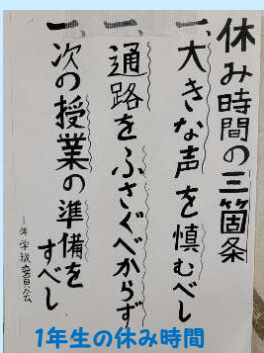 休み時間の三箇条
一、大きな声を慎むべし
一、通路をふさぐべからず
一、次の授業の準備を
すべし
一年学級委員会
1年生の休み時間